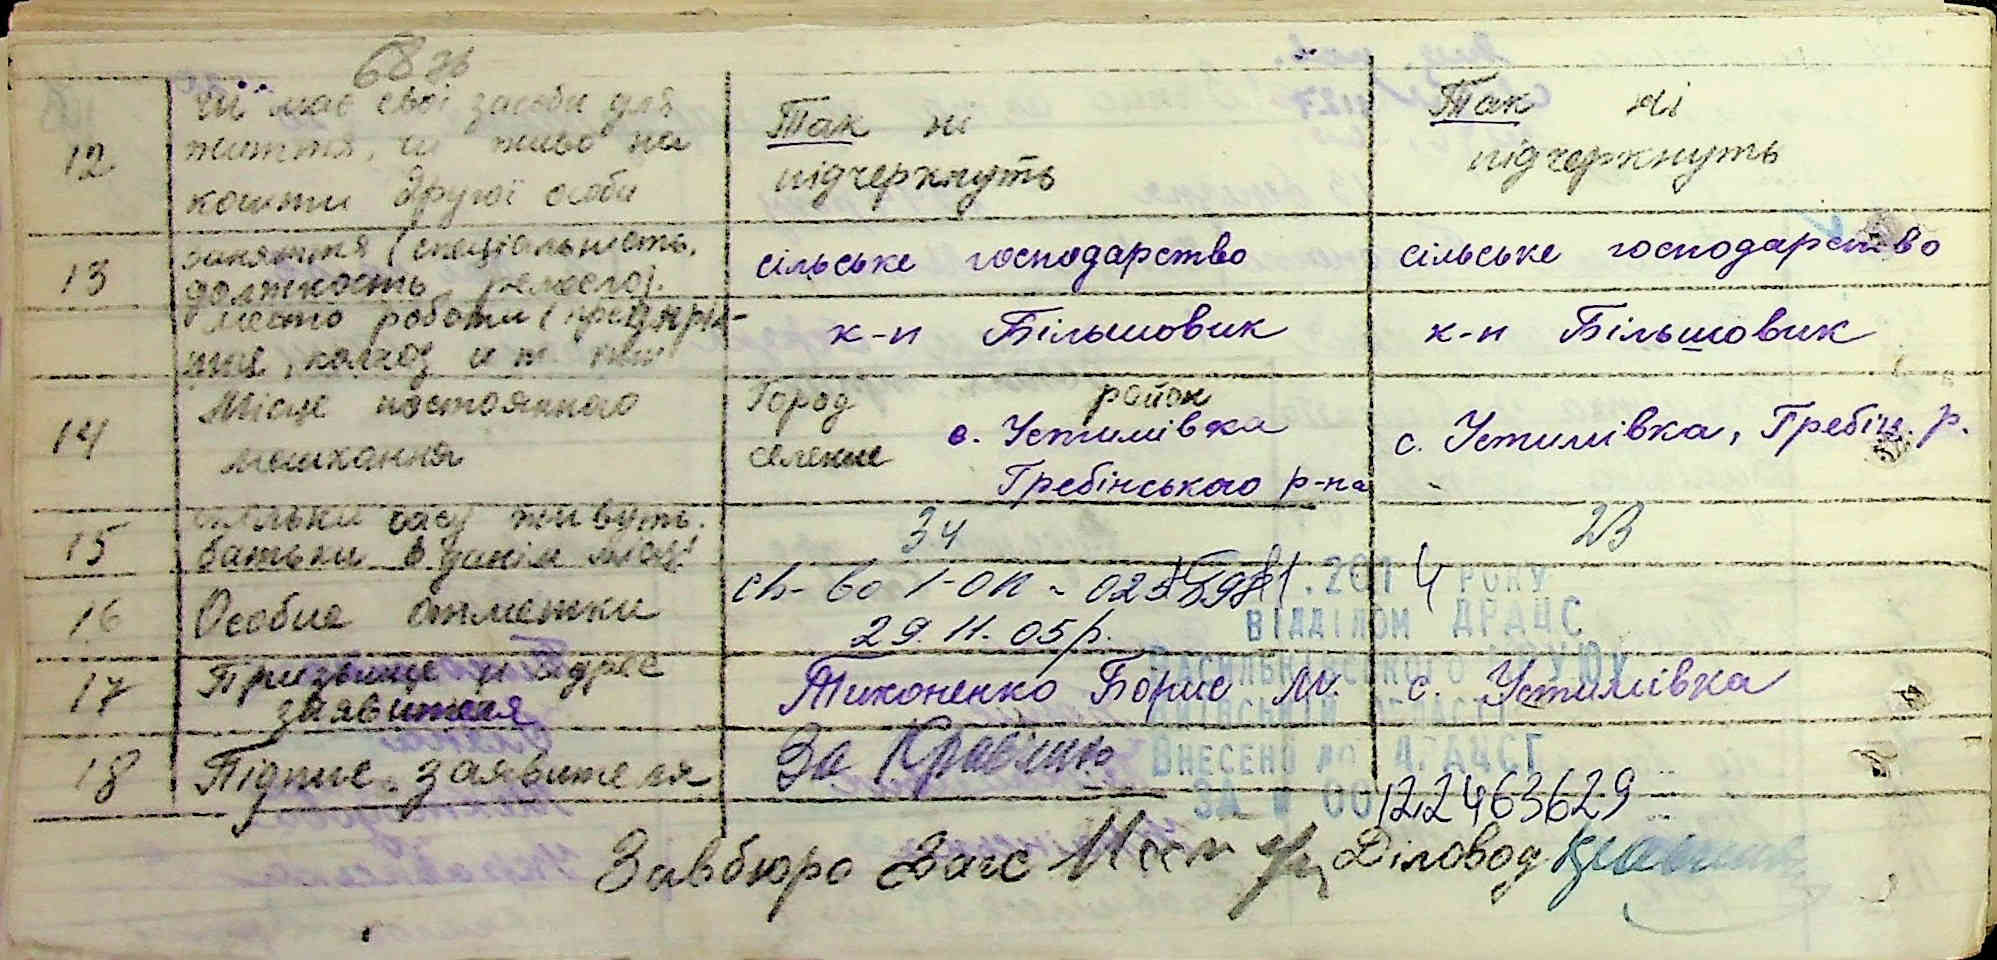 68 зв
12 чи має свої засоби для
життя, чи живе на
кошти другої особи
Так ні
підчеркнуть
Так ні
підчеркнуть
13 заняття (спеціальність,
должность, ремесло).
сільське господарство
сільське господарство
место роботи (предприя-
тия, колхоз и т.
к-п Більшовик
к-п Більшовик
14 Місце постоянного
мешкання
Город район
селение с. Устимівка
Гребінського р-на
с. Устимівка, Гребін. р.
15 скільки часу живуть
батьки в даній місц.
34
23
16 Особие отметки
св-во 1-ОК
29.11.05р.
.2014 РОКУ
ВІДДІЛОМ ДРАЦС
ВАСИЛЬКІВСЬКОГО МРУЮ
КИЇВСЬКОЇ ОБЛАСТІ
ВНЕСЕНО ДО ДРАЦСГ
ЗА № 00122463629
17 Призвище и адрес
заявителя
Тихоненко Борис М. с. Устимівка
18 Підпис заявителя
За
Завбюро Загс Діловод